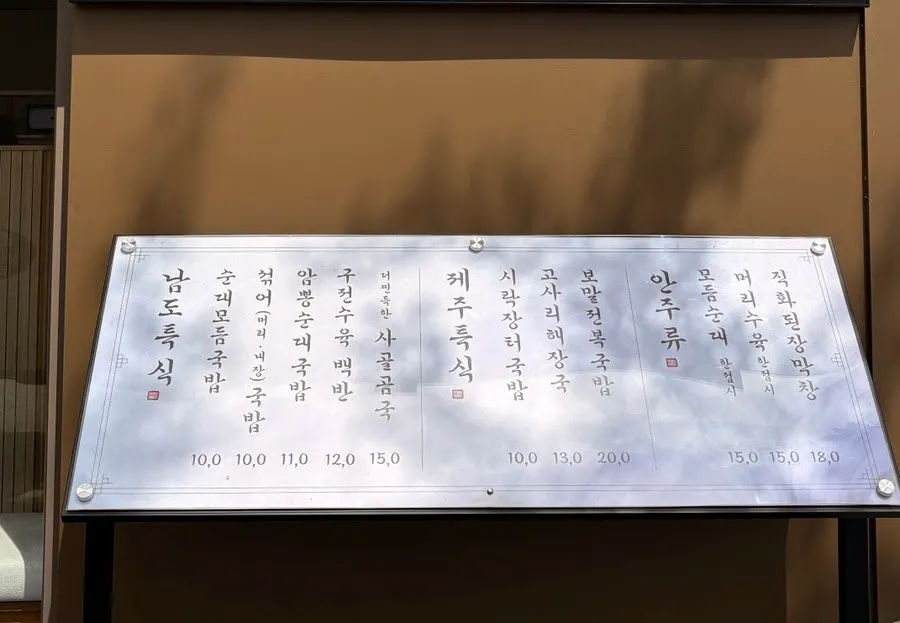 남도특식
순대모듬국밥 10,0
섞어(머리·내장)국밥 10,0
암뽕순대국밥 11,0
구전수육 백반 12,0
더찐득한 사골곰국 15,0
제주특식
시락장터국밥 10,0
고사리해장국 13,0
보말전복국밥 20,0
안주류
모듬순대 한접시 15,0
머리수육 한접시 15,0
직화된장막창 18,0